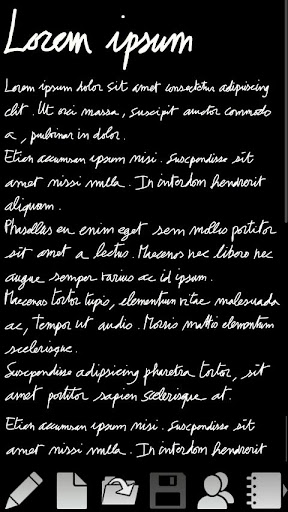 Lorem ipsum
Lorem ipsum dolor sit amet consectetur adipiscing
elit. Ut orci massa, suscipit auctor commodo
a, pulvinar in dolor.
Etien accumsan ipsum nisi. Suspendisse sit
amet nissi nulla. In interdom hendrerit
aliquam.
Phaselles eu enim eget sem mollis portitor
sit amet a lectus. Maecenas nec libero nec
augue semper varius ac id ipsum.
Maecenas tortor turpis, elementum vitae malesuada
ac, tempor ut audio. Morbis mattis elementum
scelerisque.
Suspendisse adipsicing pharetra tortor, sit
amet portitor sapien scelerisque at.
Etien accumsan ipsum nisi. Suspendisse sit
amet nissi nulla. In interdom hendrerit